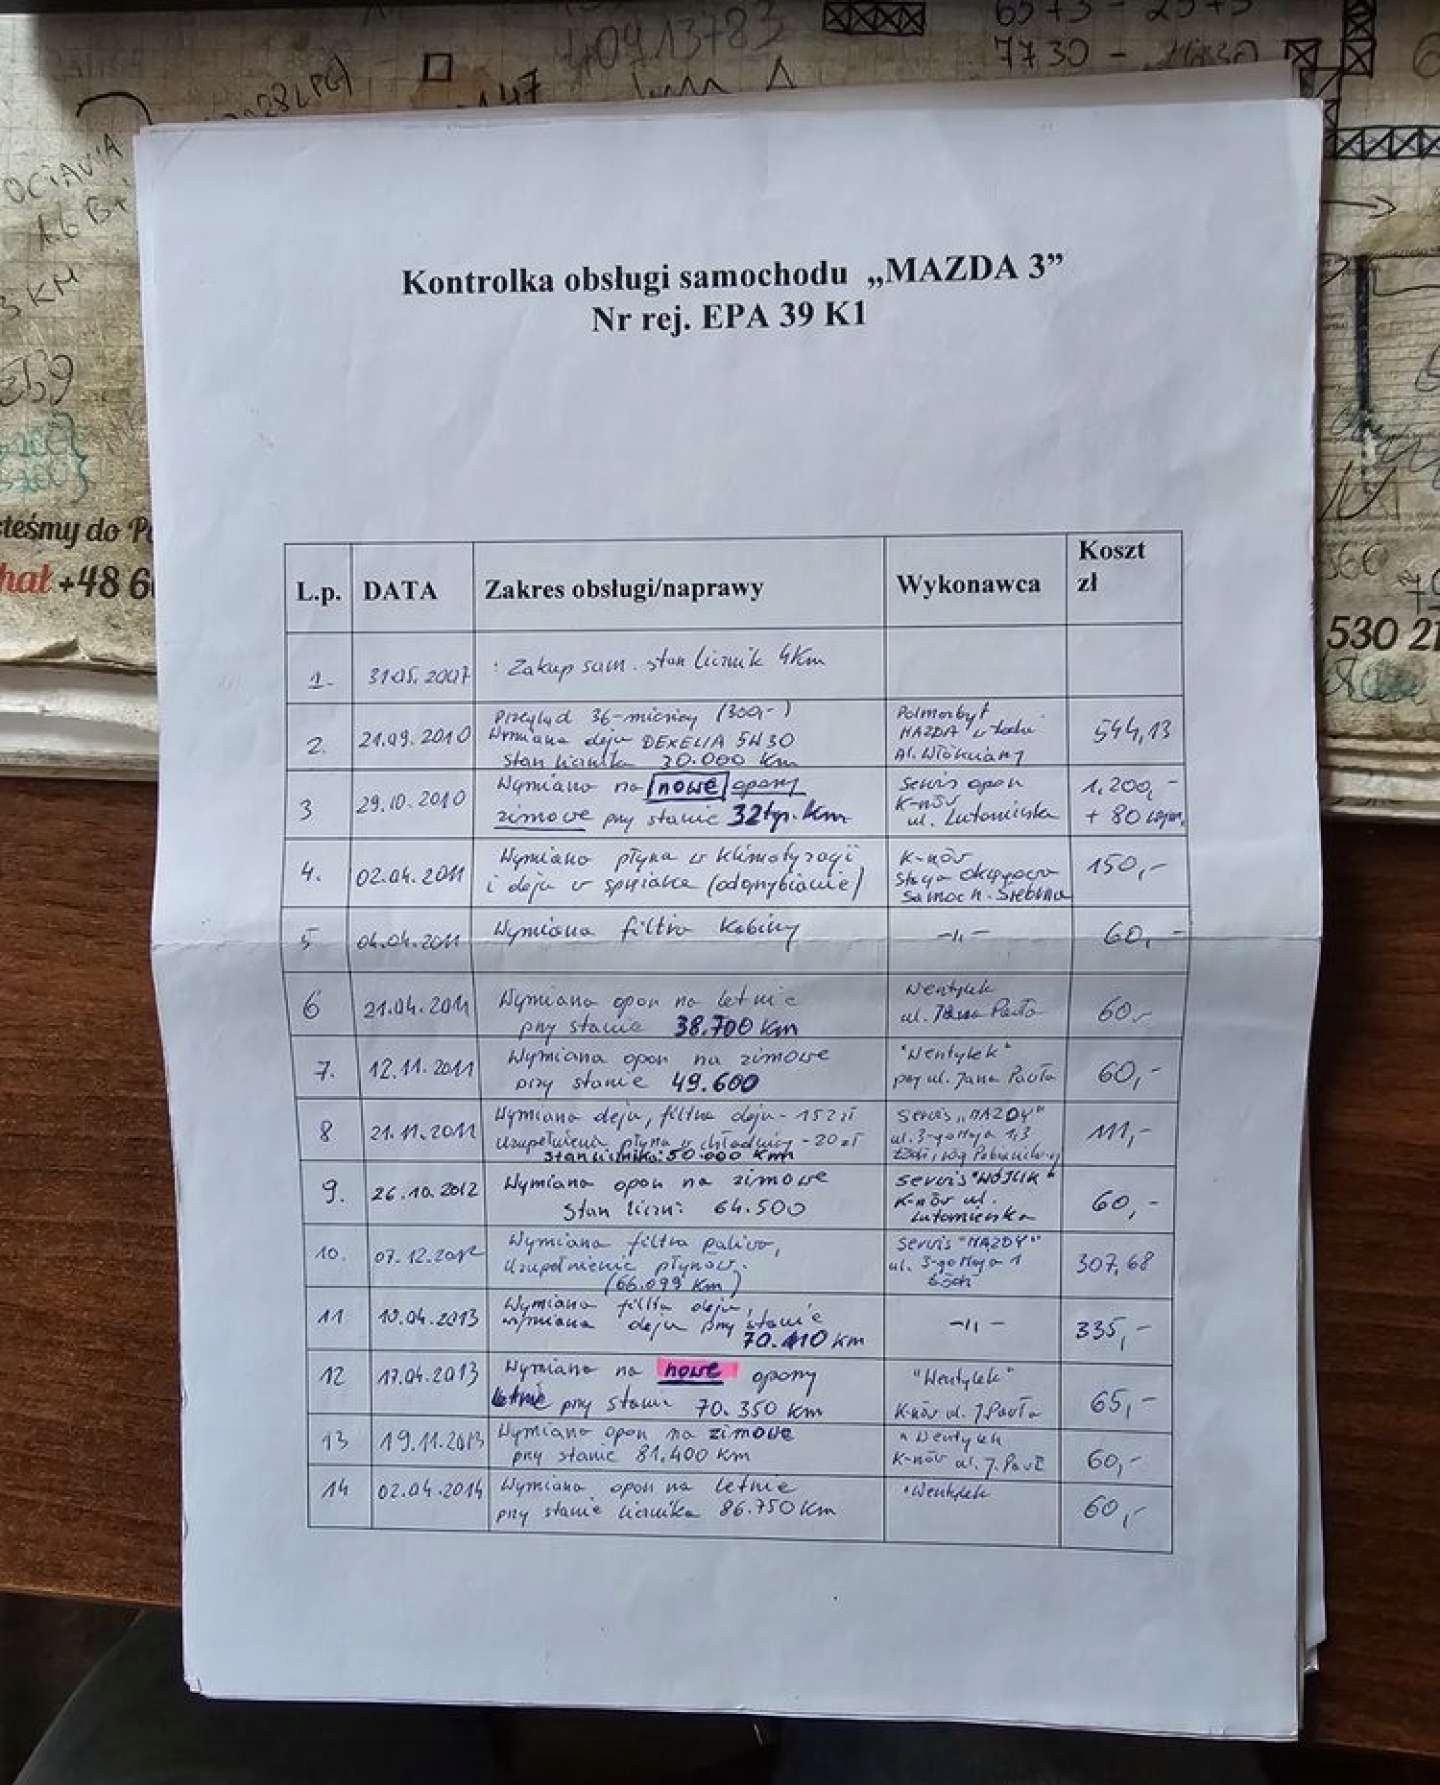 40913783
6573 - 2573
7730 -
147
OCIAVIA
1.6 B
3 KM
530 21
teśmy do P
hał +48 6
Kontrolka obsługi samochodu „MAZDA 3”
Nr rej. EPA 39 K1
L.p. DATA Zakres obsługi/naprawy Wykonawca Koszt zł
1. 31.05.2007 : Zakup sam. stan licznik 4Km
2. 21.09.2010 Przegląd 36-miesięcy (300,-) Polmozbyt 544,13
Wymiana oleju DEXELIA 5W30 MAZDA w Łodzi
Stan licznika 30.000 Km Al. Włókniarzy
3 29.10.2010 Wymiana na nowe opony Serwis opon 1.200,-
zimowe przy stanie 32tyś.Km K-nów ul. Lutomierska + 80
4. 02.04.2011 Wymiana płynu w klimatyzacji K-nów 150,-
i oleju w (odgrzybianie) Stacja
Samoch. Srebrna
5 04.04.2011 Wymiana filtra kabiny -„- 60,-
6 21.04.2011 Wymiana opon na letnie Wentylek 60,-
przy stanie 38.700 Km ul. Jana Pawła
7. 12.11.2011 Wymiana opon na zimowe "Wentylek" 60,-
przy stanie 49.600 przy ul. Jana Pawła
8 21.11.2011 Wymiana oleju, filtra oleju - 152 zł Serwis „MAZDY" 111,-
Uzupełnienie płynu w chłodnicy - 20 zł ul. 3-go Maja 1/3
Stan licznika: 50.000 Km Łódź, róg
9. 26.10.2012 Wymiana opon na zimowe Serwis "WÓJCIK" 60,-
Stan liczn: 64.500 K-nów ul. Lutomierska
10. 07.12.2012 Wymiana filtra paliwa, Serwis "MAZDY" 307,68
Uzupełnienie płynów. ul. 3-go Maja 1
(66.099 Km) Łódź
11 10.04.2013 Wymiana filtra oleju, -„- 335,-
wymiana oleju przy stanie
70.110 km
12 17.04.2013 Wymiana na nowe opony "Wentylek" 65,-
letnie przy stanie 70.350 Km K-nów ul. J.Pawła
13 19.11.2013 Wymiana opon na zimowe "Wentylek 60,-
przy stanie 81.400 Km K-nów ul. J.
14 02.04.2014 Wymiana opon na letnie "Wentylek 60,-
przy stanie licznika 86.750 Km